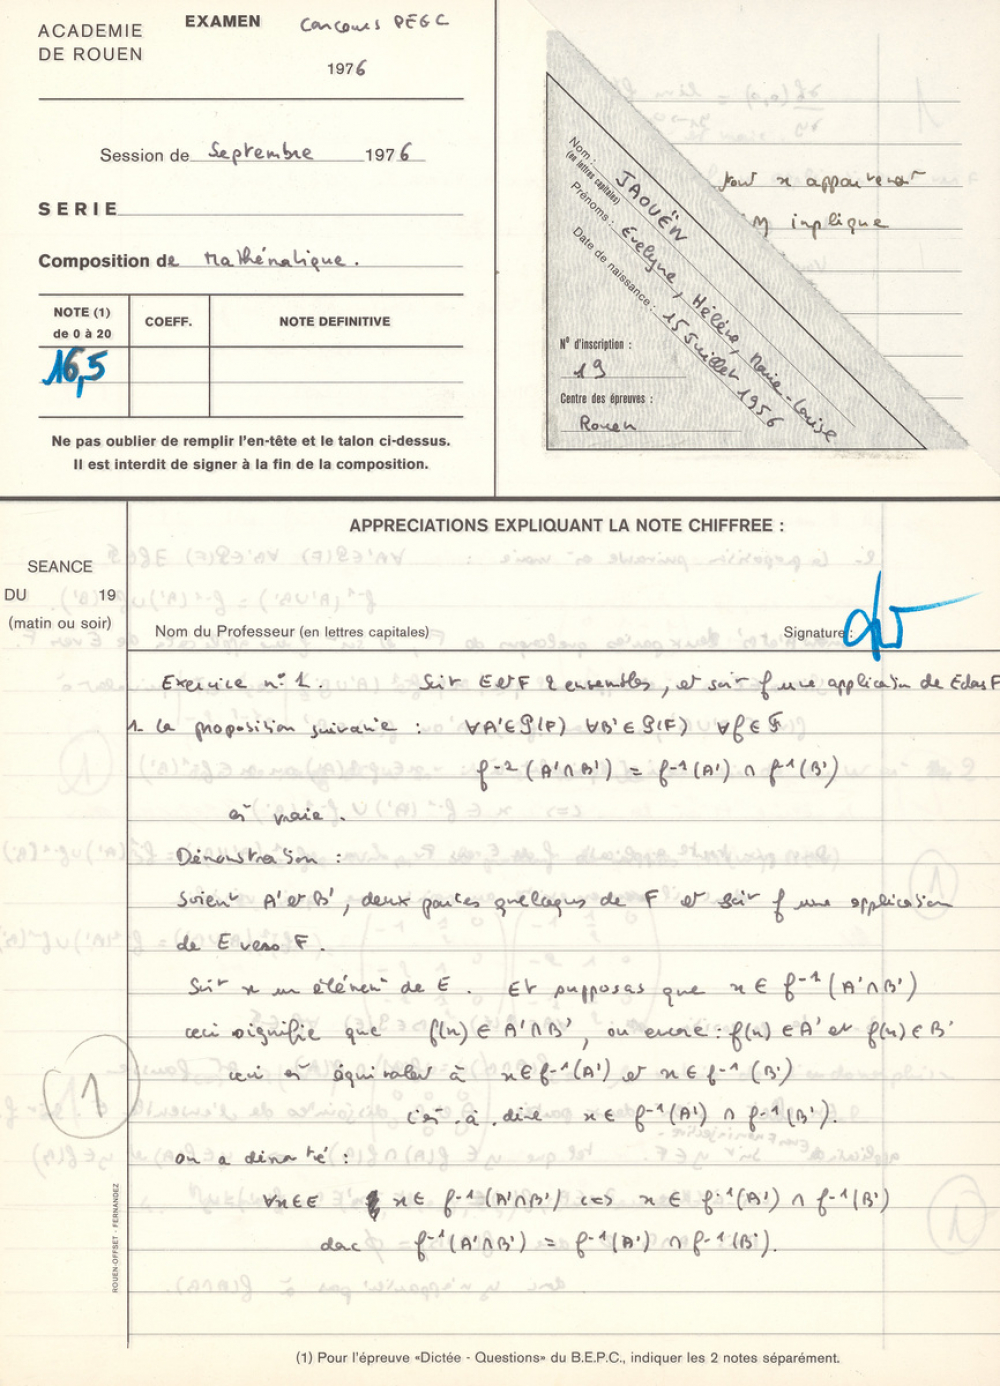 ACADEMIE
DE ROUEN
EXAMEN Concours PEGC
1976
Session de Septembre 1976
SERIE
Composition de Mathématique.
NOTE (1)
de 0 à 20
COEFF.
NOTE DEFINITIVE
16,5
Ne pas oublier de remplir l'en-tête et le talon ci-dessus.
Il est interdit de signer à la fin de la composition.
Nom :
(en lettres capitales)
JAOUËN
Prénoms : Evelyne, Hélène, Marie-Louise
Date de naissance : 15 Juillet 1956
N° d'inscription :
19
Centre des épreuves :
Rouen
tout x appartenant
implique
APPRECIATIONS EXPLIQUANT LA NOTE CHIFFREE :
SEANCE
DU 19
(matin ou soir)
Nom du Professeur (en lettres capitales)
Signature :
Exercice n° 1. Soit E et F 2 ensembles, et soit f une application de E dans F
1. La proposition suivante : ∀A'∈P(F) ∀B'∈P(F) ∀f∈F
f⁻¹(A'∩B') = f⁻¹(A') ∩ f⁻¹(B')
est vraie.
Démonstration :
Soient A' et B', deux parties quelconques de F et soit f une application
de E vers F.
Soit x un élément de E. Et supposons que x ∈ f⁻¹(A'∩B')
ceci signifie que f(x) ∈ A'∩B', ou encore : f(x) ∈ A' et f(x) ∈ B'
ceci est équivalent à x∈f⁻¹(A') et x∈f⁻¹(B')
c'est.à.dire x∈ f⁻¹(A') ∩ f⁻¹(B').
1
on a démontré :
∀x∈E x∈ f⁻¹(A'∩B') <=> x ∈ f⁻¹(A') ∩ f⁻¹(B')
donc f⁻¹(A'∩B') = f⁻¹(A') ∩ f⁻¹(B').
ROUEN-OFFSET - FERNANDEZ
(1) Pour l'épreuve «Dictée - Questions» du B.E.P.C., indiquer les 2 notes séparément.